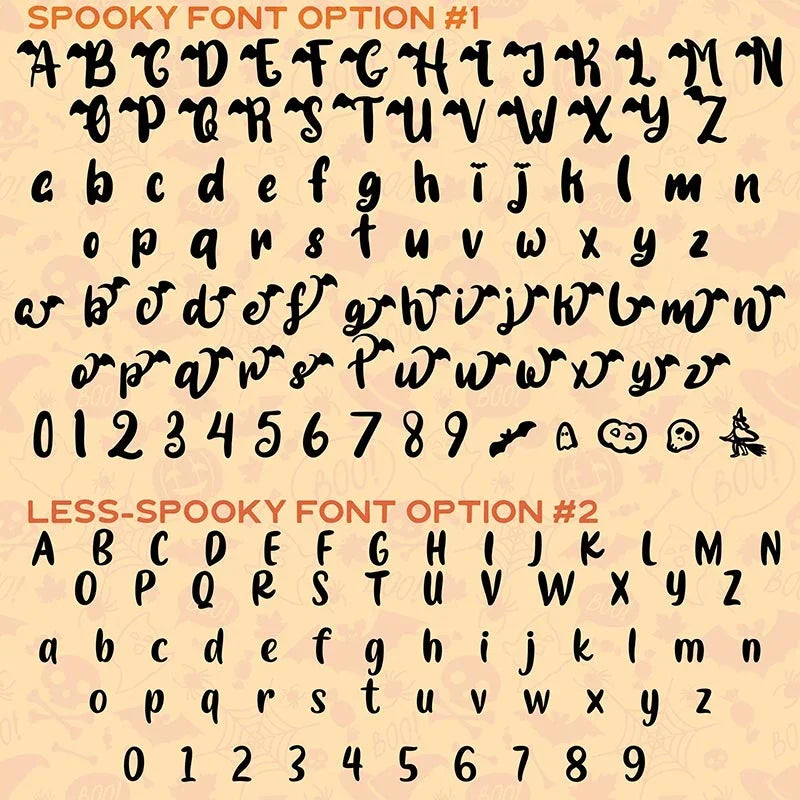 SPOOKY FONT OPTION #1
A B C D E F G H I J K L M N
O P Q R S T U V W X Y Z
a b c d e f g h i j k l m n
o p q r s t u v w x y z
a b c d e f g h i j k l m n
o p q r s t u w w x y z
0 1 2 3 4 5 6 7 8 9
LESS-SPOOKY FONT OPTION #2
A B C D E F G H I J K L M N
O P Q R S T U V W X Y Z
a b c d e f g h i j k l m n
o p q r s t u v w x y z
0 1 2 3 4 5 6 7 8 9